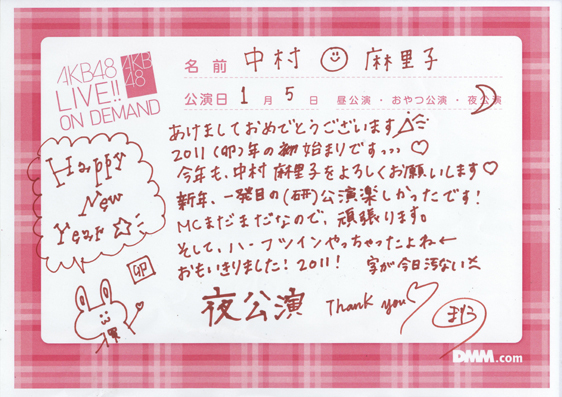 AKB48
LIVE!!
ON DEMAND
AKB
48
名前 中村 麻里子
公演日 1月5日 昼公演・おやつ公演・夜公演
あけましておめでとうございます
2011(卯)年の初始まりですっっっ♡
今年も、中村麻里子をよろしくお願いします♡
新年、一発目の(研)公演楽しかったです!
MCまだまだなので、頑張ります。
そして、ハーフツインやっちゃったよね←
おもいきりました!2011! 字が今日汚ない
Happy
New
Year☆
卯
夜公演 Thank you♡
DMM.com